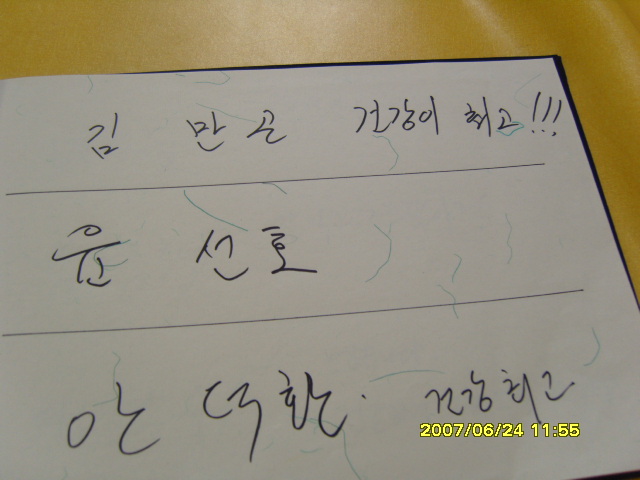 김 만곤 건강이 최고!!!
윤 선호
안 덕환. 건강최고
2007/06/24 11:55